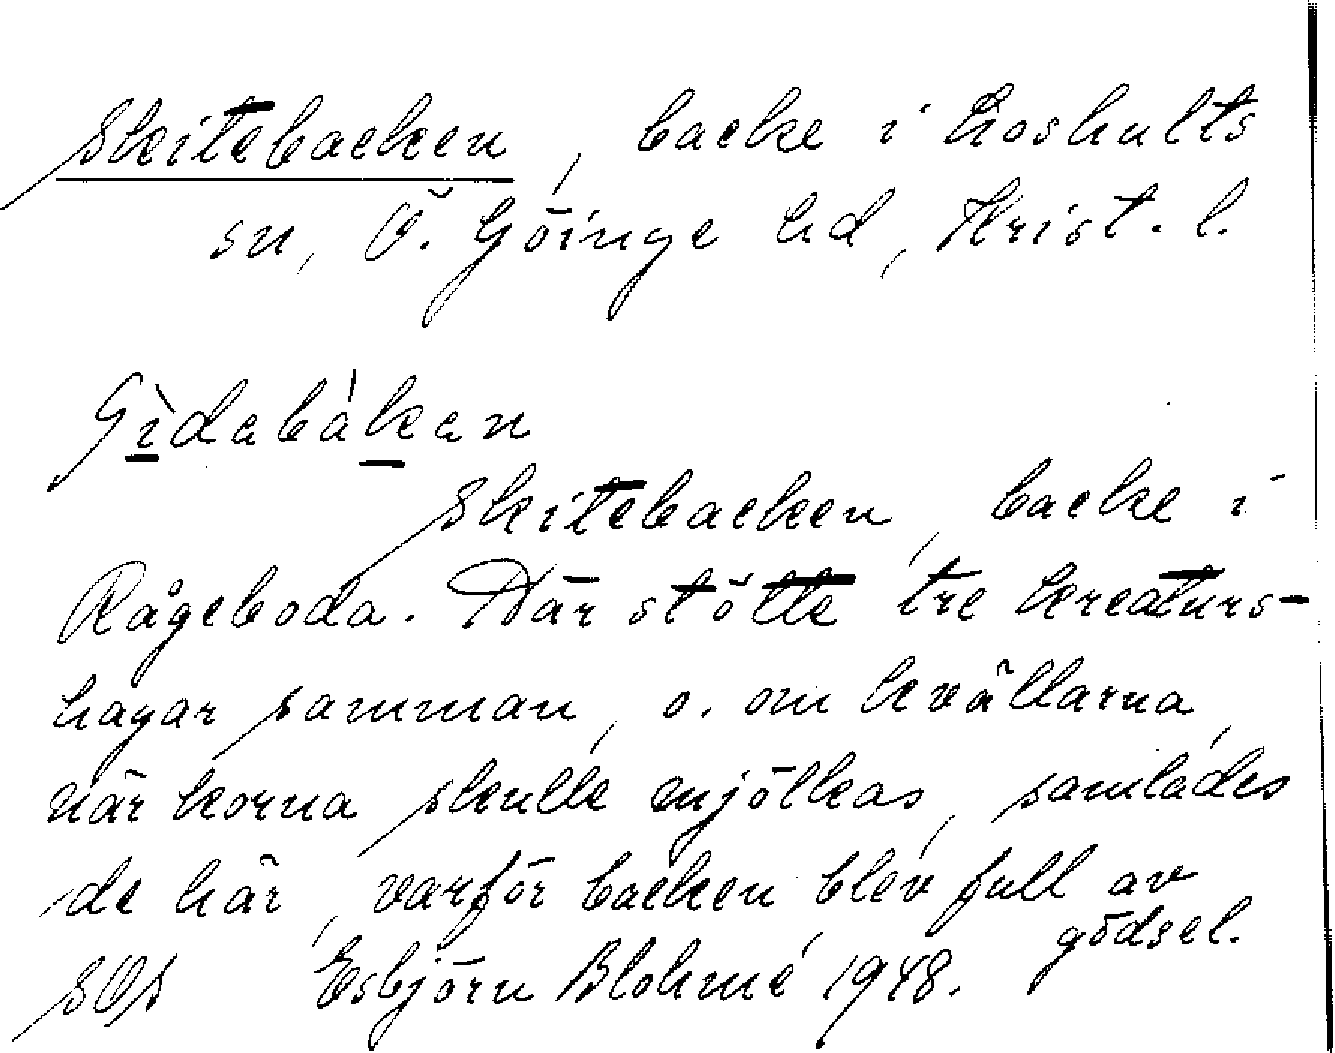 Skitebacken, backe i Loshults
sn, Ö. Göinge hd, Krist. l.
Skitebacken, backe i
Rågeboda. Där stötte tre kreaturs-
hagar samman, o. om kvällarna,
när korna skulle mjölkas, samlades
de här, varför backen blev full av
gödsel.
Esbjörn Blohmé 1948.